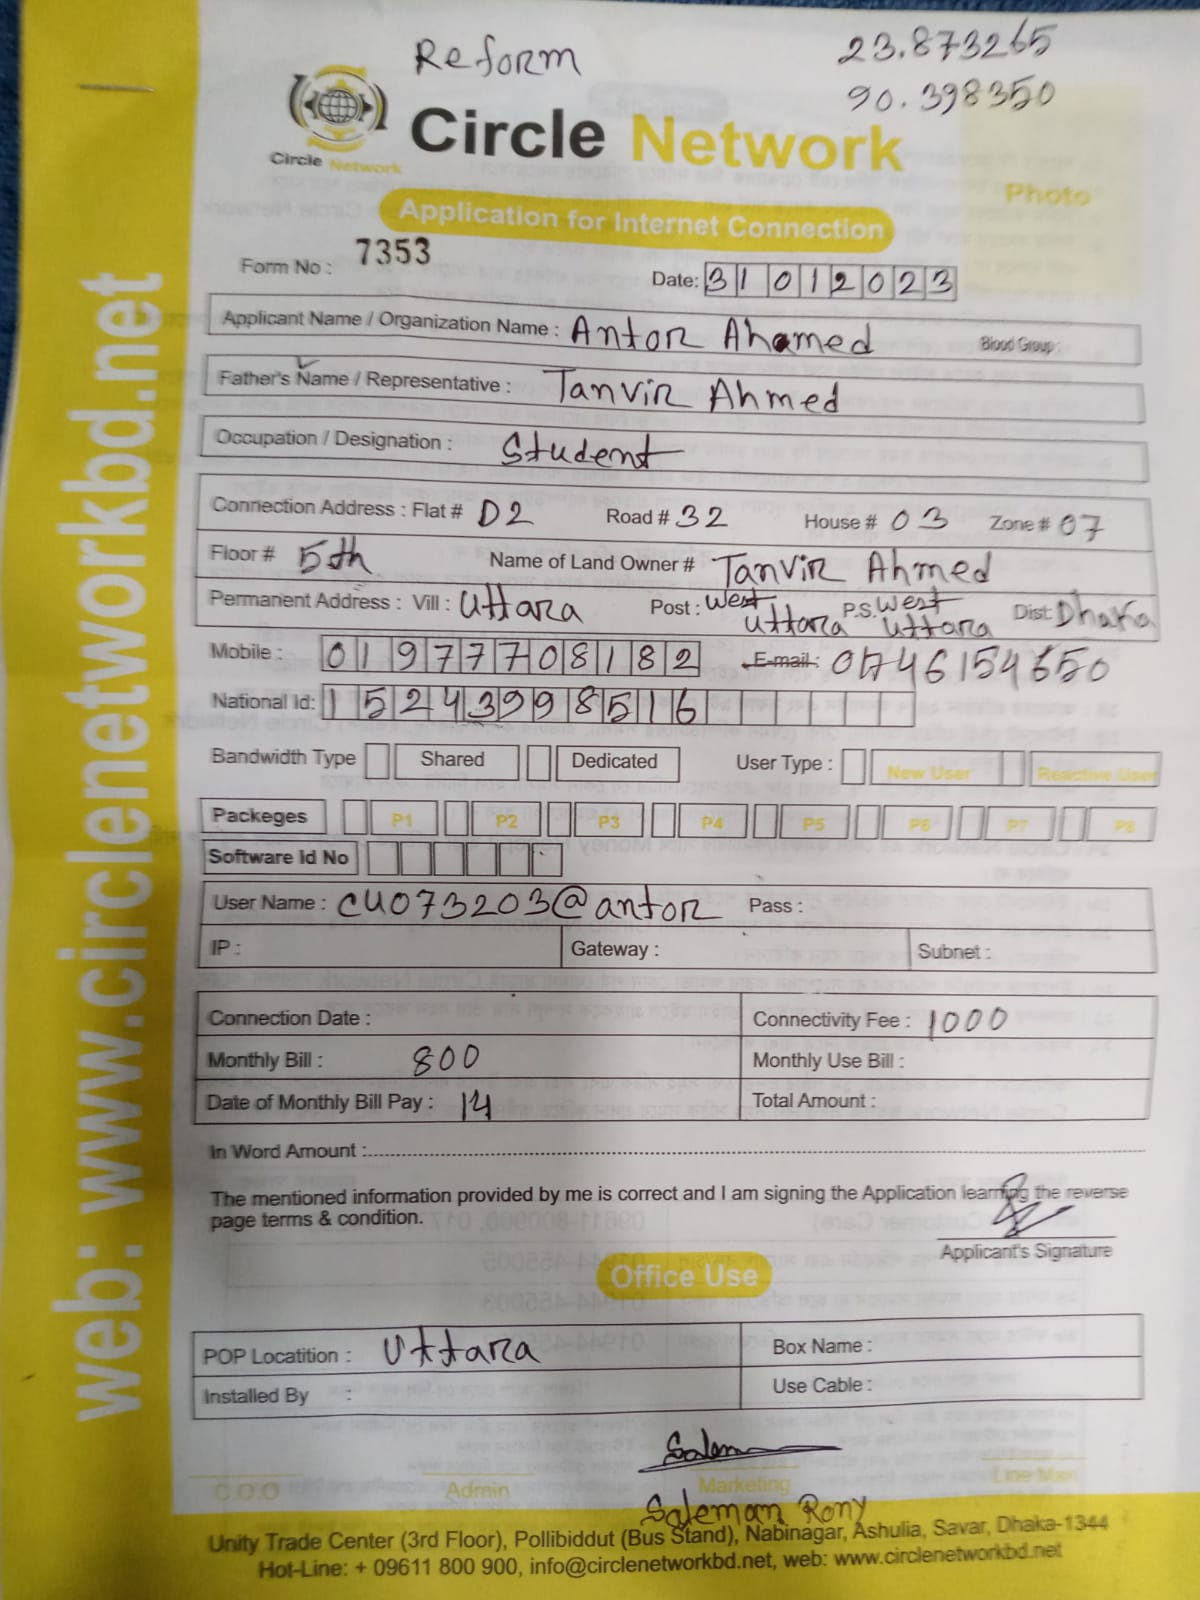 Reform
23.873265
90.398350
Circle Network
Circle Network
Photo
Application for Internet Connection
Form No : 7353
Date: 31 01 2023
Applicant Name / Organization Name : Antor Ahamed Blood Group:
Father's Name / Representative : Tanvir Ahmed
Occupation / Designation : Student
Connection Address : Flat # D2 Road # 32 House # 03 Zone # 07
Floor # 5th Name of Land Owner # Tanvir Ahmed
Permanent Address : Vill : Uttara Post : West Uttara P.S. West Uttara Dist: Dhaka
Mobile : 01977708182 E-mail : 01746154650
National Id: 15243998516
Bandwidth Type Shared Dedicated User Type : New User Reactive User
Packeges P1 P2 P3 P4 P5 P6 P7 P8
Software Id No
User Name : CU073203@antor Pass :
IP : Gateway : Subnet :
Connection Date : Connectivity Fee : 1000
Monthly Bill : 800 Monthly Use Bill :
Date of Monthly Bill Pay : 14 Total Amount :
In Word Amount :
The mentioned information provided by me is correct and I am signing the Application learning the reverse
page terms & condition.
Applicant's Signature
Office Use
POP Locatition : Uttara Box Name :
Installed By : Use Cable :
C.O.O Admin Marketing Line Man
Saleman Rony
Unity Trade Center (3rd Floor), Pollibiddut (Bus Stand), Nabinagar, Ashulia, Savar, Dhaka-1344
Hot-Line: + 09611 800 900, info@circlenetworkbd.net, web: www.circlenetworkbd.net
web: www.circlenetworkbd.net